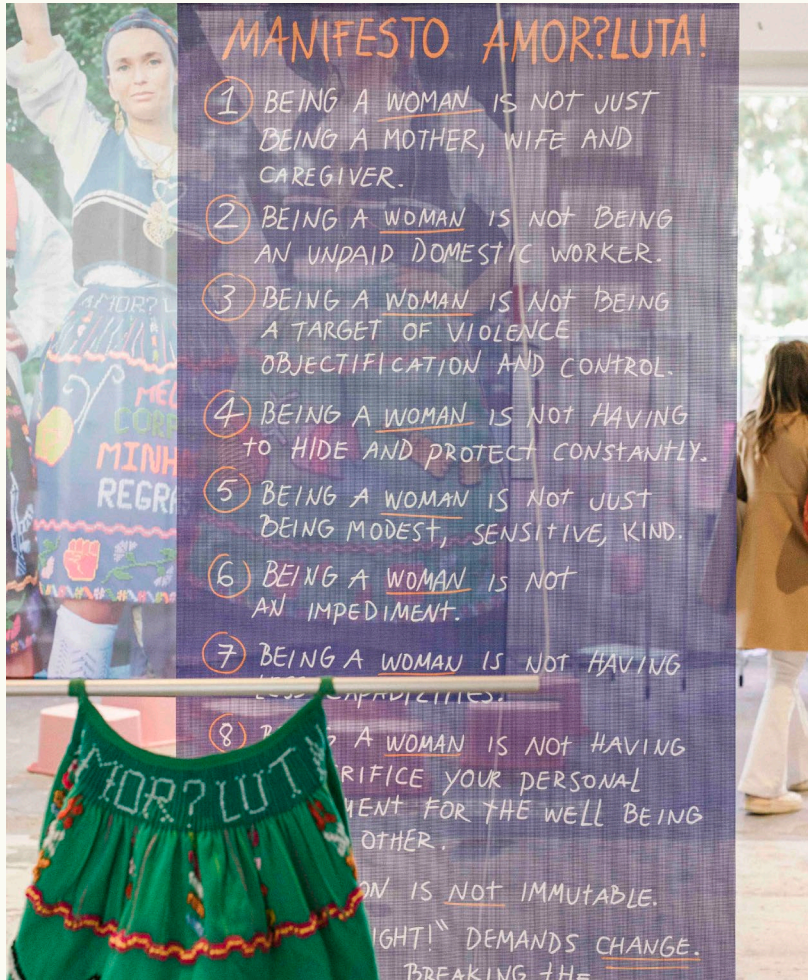 MANIFESTO AMOR?LUTA!
1 BEING A WOMAN IS NOT JUST
BEING A MOTHER, WIFE AND
CAREGIVER.
2 BEING A WOMAN IS NOT BEING
AN UNPAID DOMESTIC WORKER.
3 BEING A WOMAN IS NOT BEING
A TARGET OF VIOLENCE
OBJECTIFICATION AND CONTROL.
4 BEING A WOMAN IS NOT HAVING
TO HIDE AND PROTECT CONSTANTLY.
5 BEING A WOMAN IS NOT JUST
BEING MODEST, SENSITIVE, KIND.
6 BEING A WOMAN IS NOT
AN IMPEDIMENT.
7 BEING A WOMAN IS NOT HAVING
LESS CAPABILITIES.
8 A WOMAN IS NOT HAVING
YOUR PERSONAL
FOR THE WELL BEING
OTHER.
IS NOT IMMUTABLE.
DEMANDS CHANGE.
BREAKING THE
AMOR?
MINH
REGRA
MOR?LUT